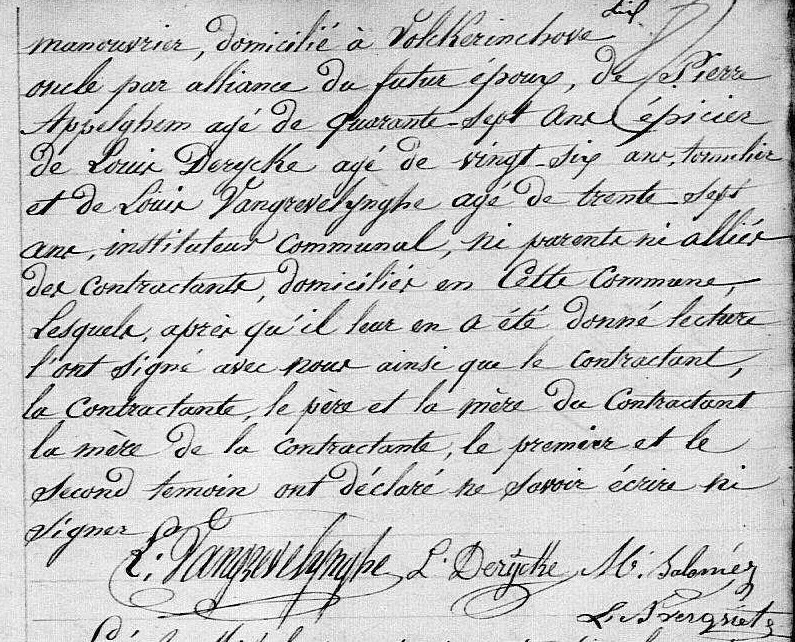 manouvrier, domicilié à Volckerinchove
oncle par alliance du futur époux, de Pierre
Appelghem agé de quarante-sept ans épicier
de Louis Derycke agé de vingt-six ans, tonnelier
et de Louis Vangrevelynghe agé de trente-sept
ans, instituteur communal, ni parents ni alliés
des contractants, domiciliés en cette commune,
Lesquels, après qu'il leur en a été donné lecture
l'ont signé avec nous ainsi que le contractant,
la contractante, le père et la mère du contractant
la mère de la contractante, le premier et le
second temoin ont déclaré ne savoir écrire ni
signer
L. Vangrevelynghe L. Derycke M. Salomez